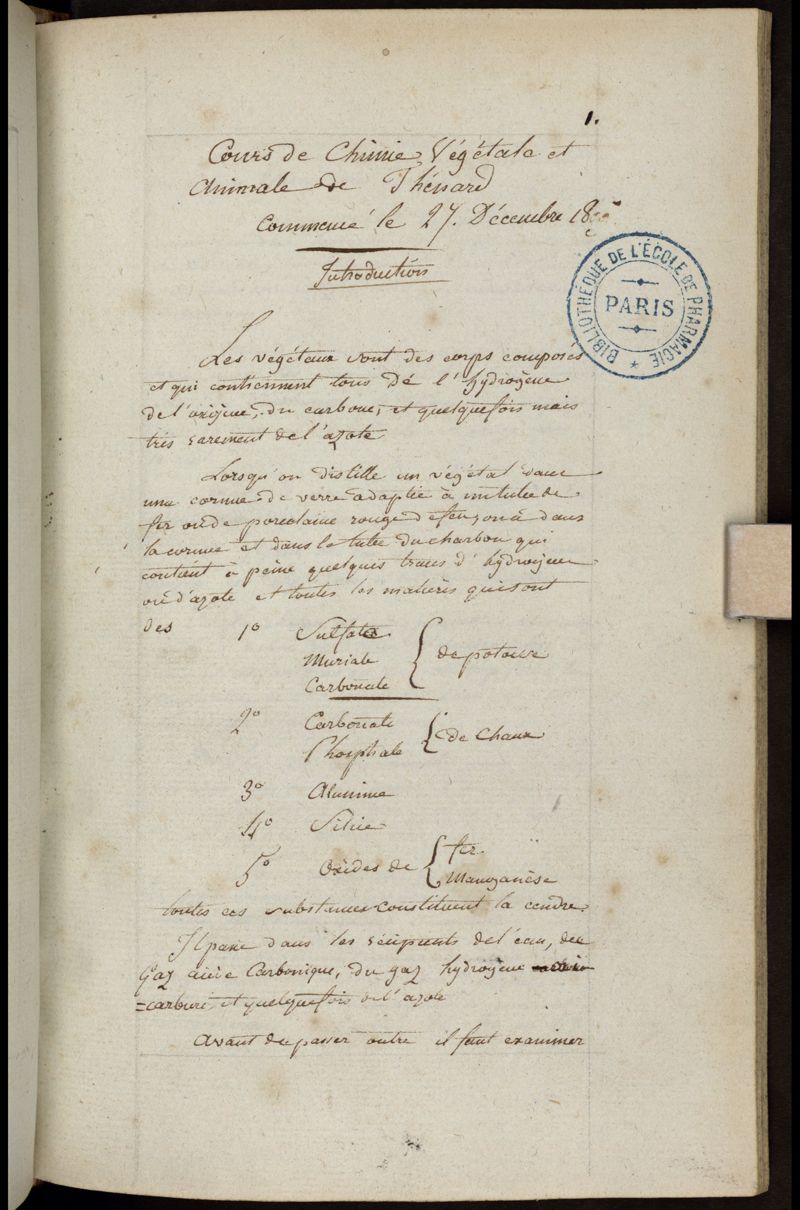 1.
Cours de Chimie Végétale et
Animale de Thénard
Commencé le 27. Décembre
Introduction
BIBLIOTHÈQUE DE L'ÉCOLE DE PHARMACIE
PARIS
Les végétaux sont des corps composés
et qui contiennent tous de l'hydrogène
de l'oxigene, du carbone, et quelquefois mais
très rarement de l'azote
Lorsqu'on distille un végétal dans
une cornue de verre adaptée à un tube de
fer ou de porcelaine rouge de feu, on a dans
la cornue et dans le tube du charbon qui
contient à peine quelques traces d'hydrogène
ou d'azote et toutes les matières qui sont
des 1º Sulfate
Muriate
Carbonate
de potasse
2º Carbonate
Phosphate
de Chaux
3º Alumine
4º Silice
5º Oxides de
fer
Manganèse
toutes ces substances constituent la cendre.
Il passe dans les récipients de l'eau, du
Gaz acide Carbonique, du gaz hydrogène
=carburé, et quelquefois de l'azote
Avant de passer outre il faut examiner